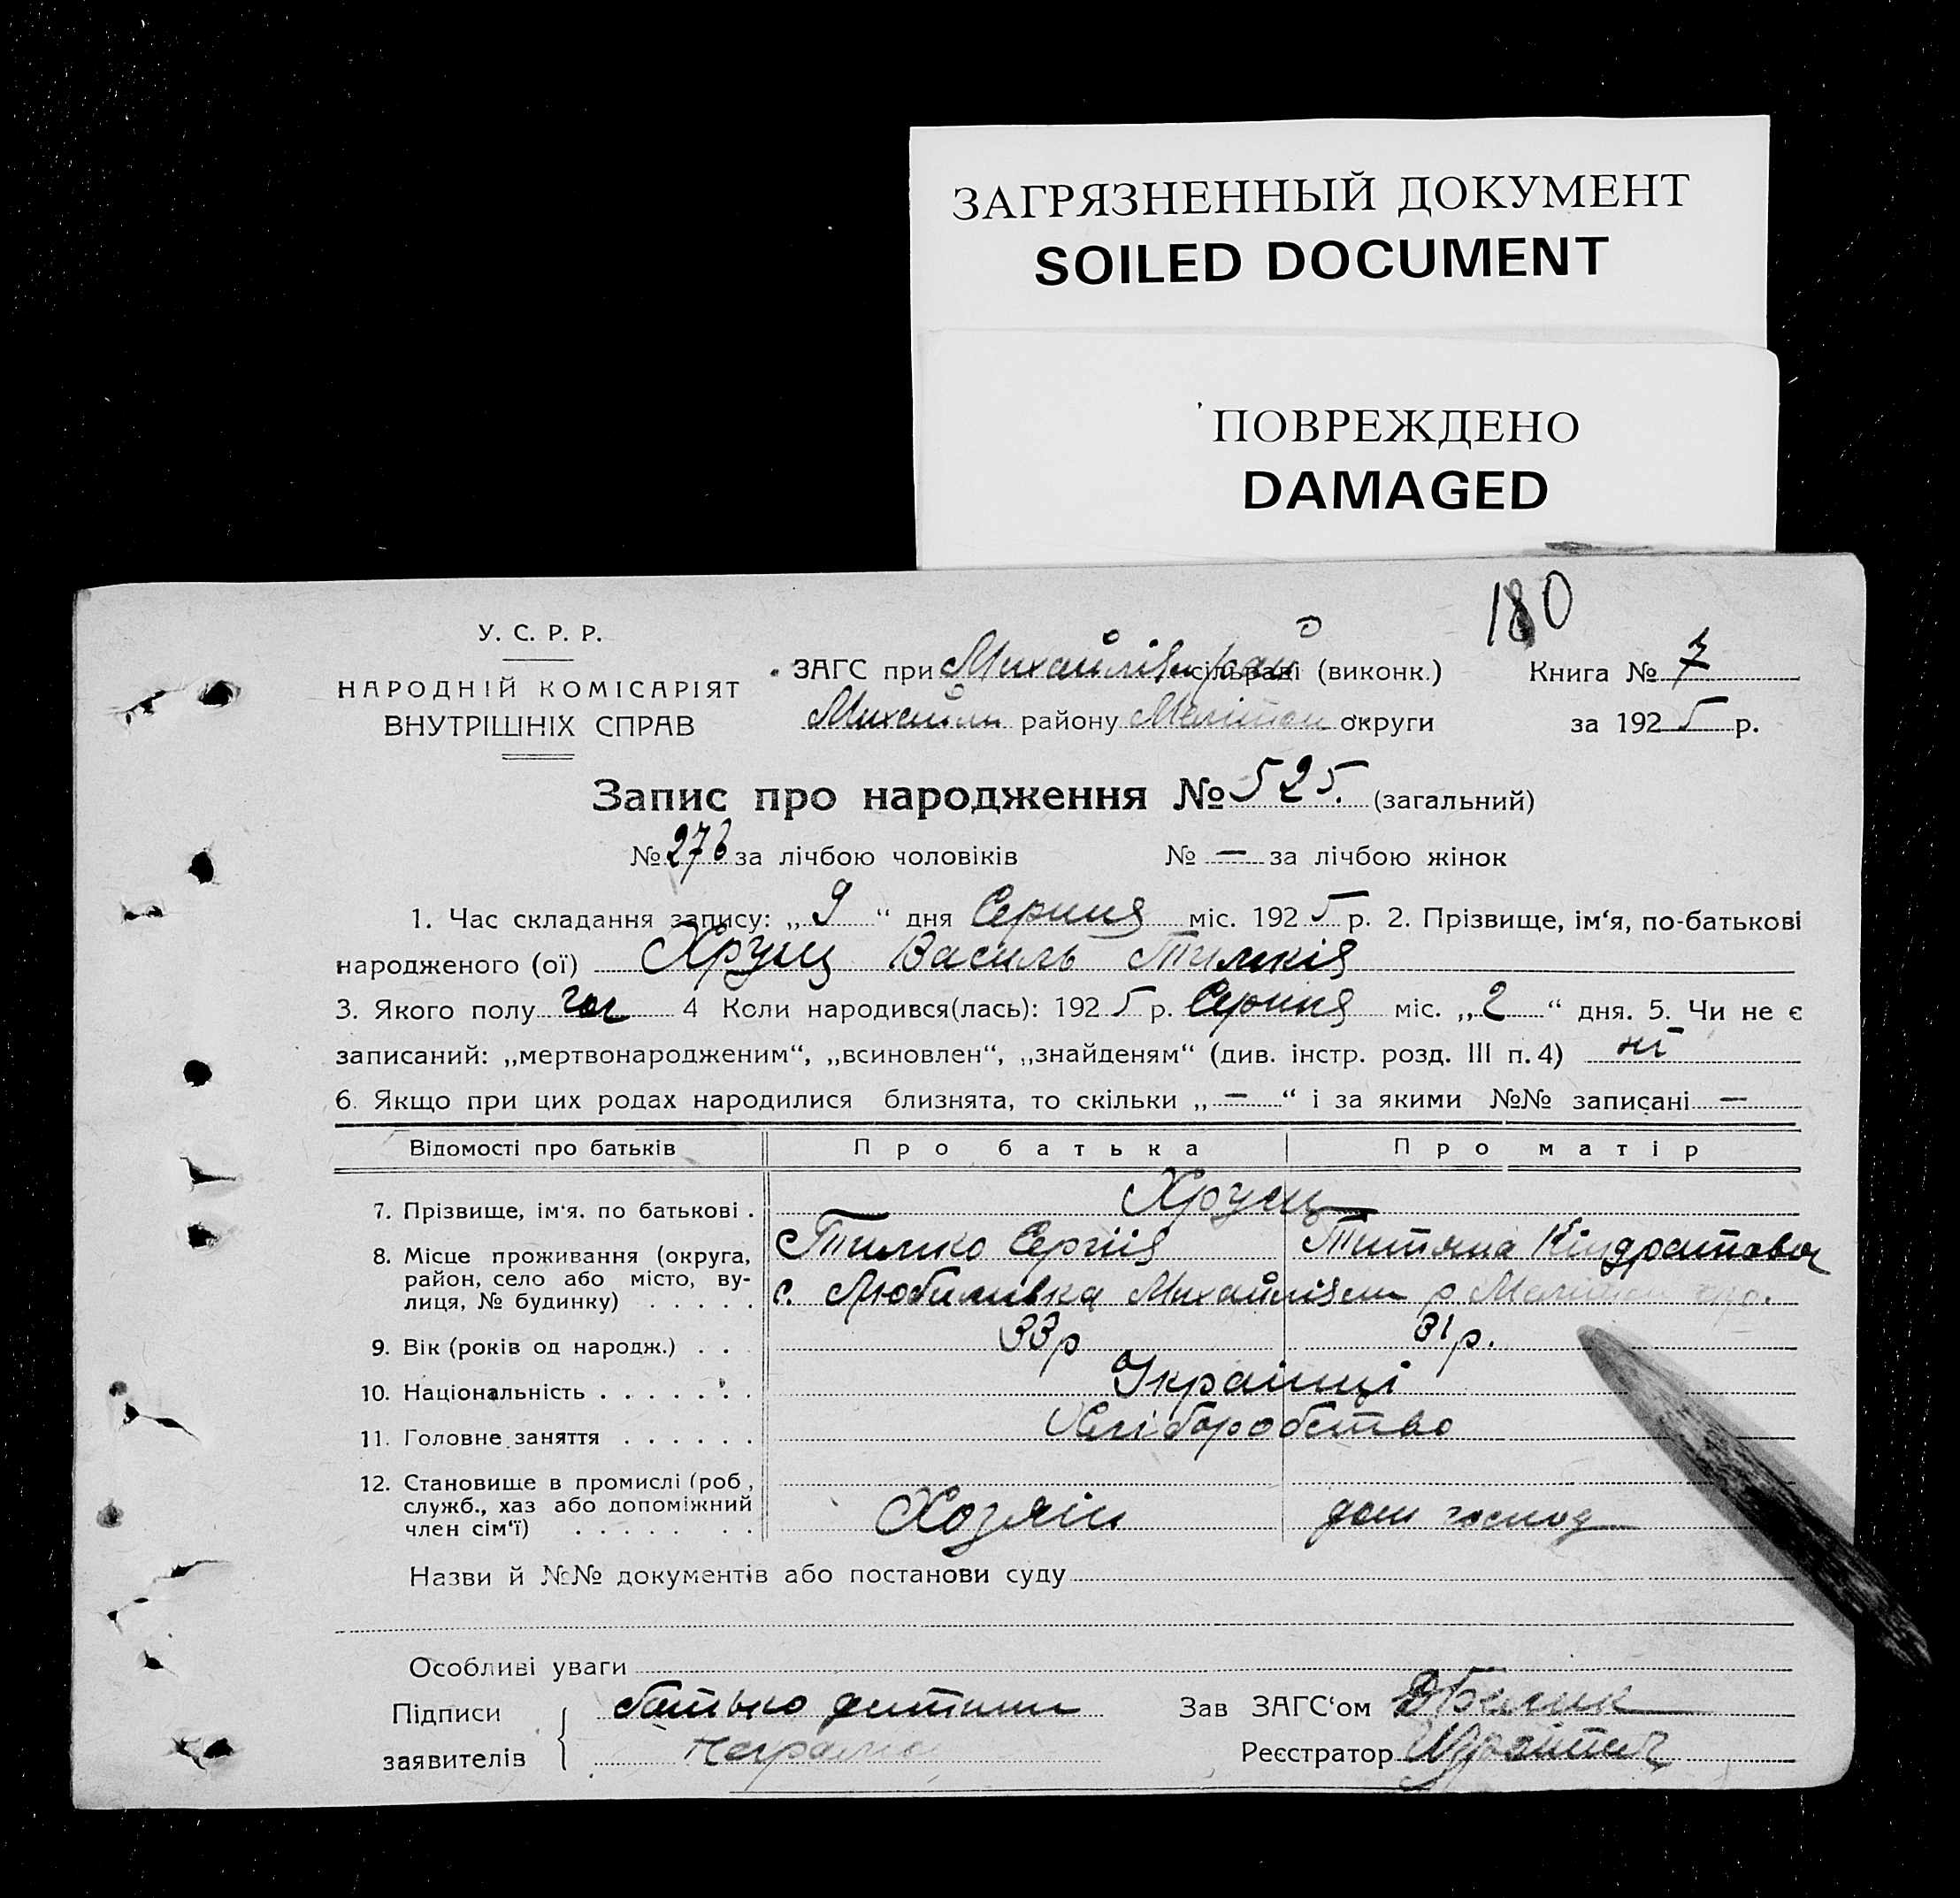 ЗАГРЯЗНЕННЫЙ ДОКУМЕНТ
SOILED DOCUMENT
ПОВРЕЖДЕНО
DAMAGED
180
У. С. Р. Р.
НАРОДНІЙ КОМІСАРІЯТ
ВНУТРІШНІХ СПРАВ
ЗАГС при Михайлівськ сільраді (виконк.) Книга № 7
Михайлів району Мелітоп округи за 1925 р.
Запис про народження № 525. (загальний)
№ 276 за лічбою чоловіків № — за лічбою жінок
1. Час складання запису: „9“ дня Серпня міс. 1925 р. 2. Прізвище, ім‘я, по-батькові
народженого (ої) Хрущ Василь Тимків
3. Якого полу чол 4 Коли народився(лась): 1925 р. Серпня міс. „2“ дня. 5. Чи не є
записаний: „мертвонародженим“, „всиновлен“, „знайденям“ (див. інстр. розд. III п. 4) ні
6. Якщо при цих родах народилися близнята, то скільки „—“ і за якими №№ записані —
Відомості про батьків Про батька Про матір
7. Прізвище, ім‘я. по батькові . Хрущ
Тимко Сергіїв Титяна Кіндратова
8. Місце проживання (округа,
район, село або місто, ву-
лиця, № будинку) . . . . . с. Любимівка Михайлівськ р Мелітоп окр.
9. Вік (років од народж.) . . . 33 р 31 р.
10. Національність . . . . . . . Українці
11. Головне заняття . . . . . . Хліборобство
12. Становище в промислі (роб,
служб., хаз або допоміжний
член сім‘ї) . . . . . . . Хозяїн дом господ
Назви й №№ документів або постанови суду
Особливі уваги
Підписи батько дитини Зав ЗАГС‘ом
заявителів Реєстратор